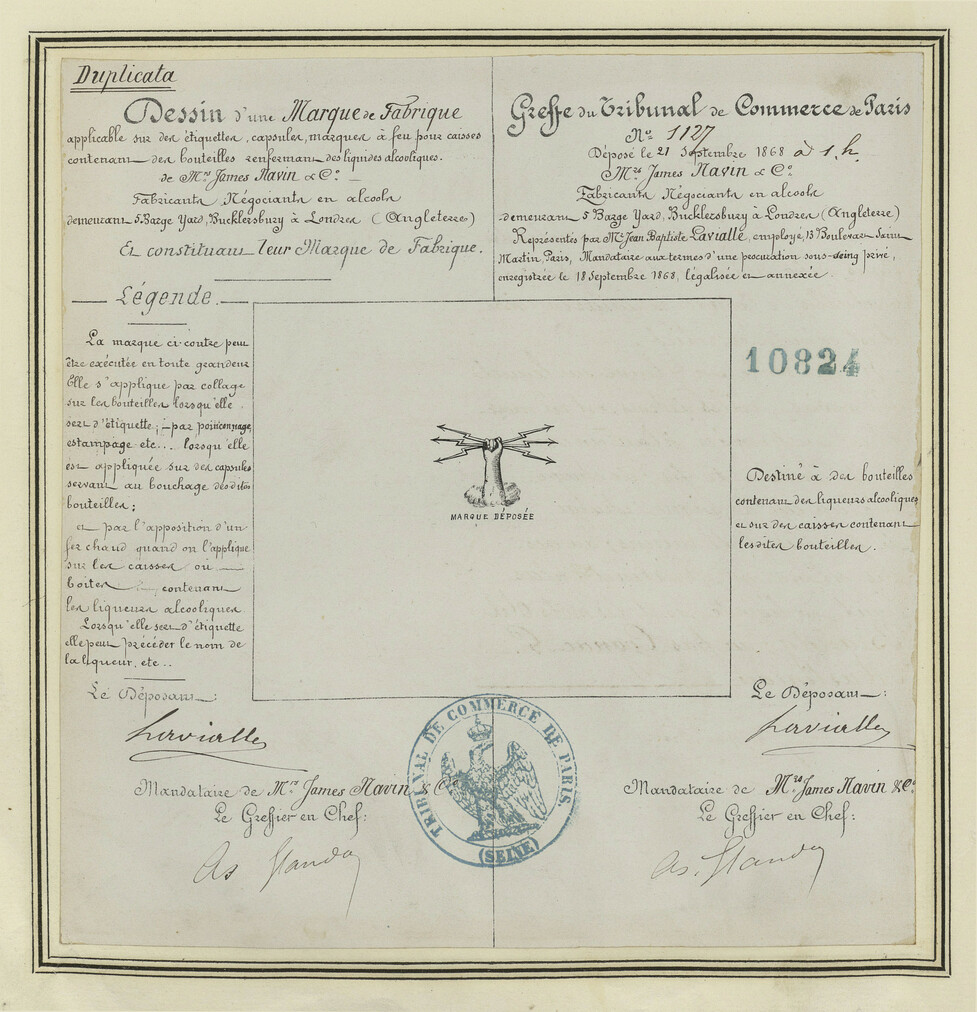 Duplicata
Dessin d'une Marque de Fabrique
applicable sur des étiquettes, capsules, marques à feu pour caisses
contenant des bouteilles renfermant des liquides alcooliques.
de Mrs James Navin & Co
Fabricants Négociants en alcools
demeurant 5 Barge Yard, Bucklersbury à Londres (Angleterre)
Et constituant leur Marque de Fabrique.
Greffe du Tribunal de Commerce de Paris
No 1127
Déposé le 21 Septembre 1868 à 1 h.
Mrs James Navin & Co
Fabricants Négociants en alcools
demeurant 5 Barge Yard, Bucklersbury à Londres (Angleterre)
Représentés par Mr Jean Baptiste Lavialle, employé, 13 Boulevart Saint
Martin, Paris, Mandataire aux termes d'une procuration sous-seing privé,
enregistrée le 18 Septembre 1868, légalisée et annexée.
Légende.
La marque ci-contre peut
être exécutée en toute grandeur
Elle s'applique par collage
sur les bouteilles lorsqu'elle
sert d'étiquette; par poinçonnage,
estampage etc... lorsqu'elle
est appliquée sur des capsules
servant au bouchage des dites
bouteilles;
et par l'apposition d'un
fer chaud quand on l'applique
sur les caisses ou
boites contenant
les liqueurs alcooliques
Lorsqu'elle sert d'étiquette
elle peut précéder le nom de
la liqueur, etc..
MARQUE DÉPOSÉE
10824
Destiné à des bouteilles
contenant des liqueurs alcooliques
et sur des caisses contenant
lesdites bouteilles.
Le Déposant:
Lavialle
Mandataire de Mrs James Navin & Co
Le Greffier en Chef:
Le Déposant:
Lavialle
Mandataire de Mrs James Navin & Co
Le Greffier en Chef:
TRIBUNAL DE COMMERCE DE PARIS.
(SEINE)